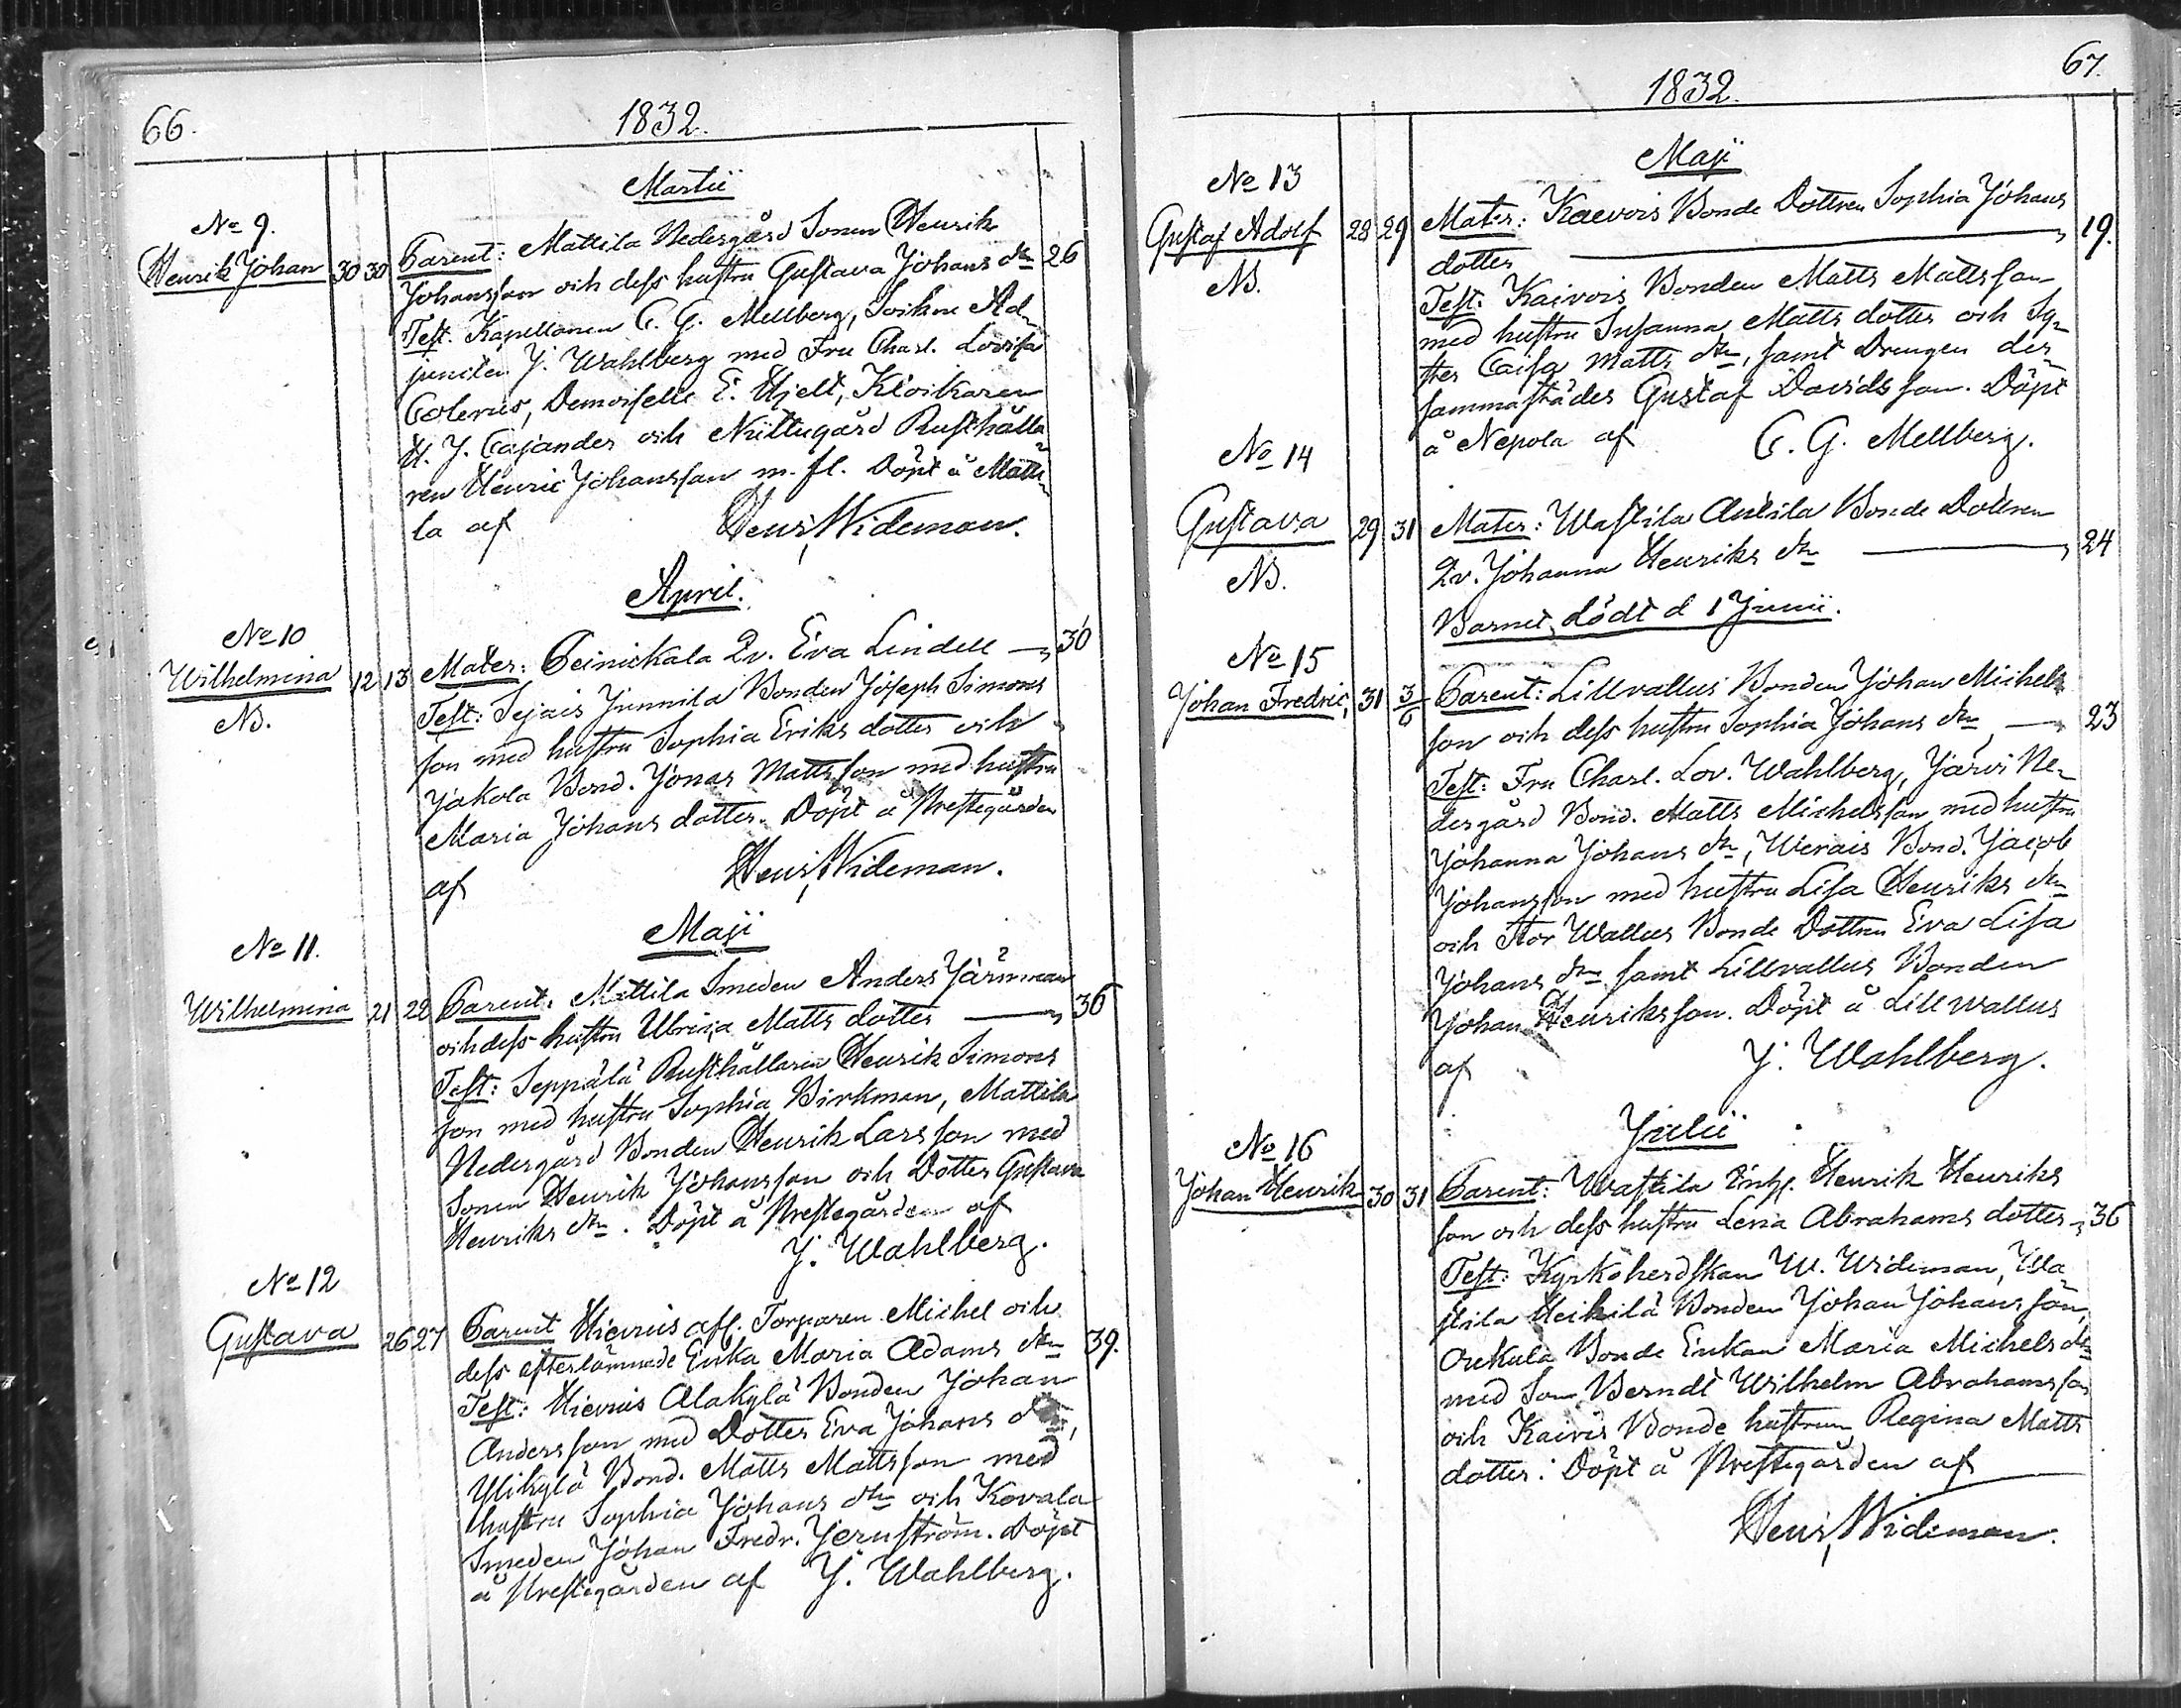 66.
1832.
Martii
No 9.
Henrik Johan 30 30 Parent: Mattila Nedergård Sonen Henrik
Johansson och dess hustru Gustava Johans dtr 26
Test. Kapellanen C. G. Mellberg, Sockne Ad-
juncten J. Wahlberg med Fru Charl. Lovisa
Polerus, Demoiselle E. Hjelt, Klockaren
H. J. Cajander och Nuttugård Rusthålla-
ren Henric Johansson m. fl. Döpt å Matti-
la af Henr. Wideman.
April.
No 10
Wilhelmina 12 13 Mater: Peinickala Qv. Eva Lindell — 30
NB.
Test: Sejais Junnila Bonden Joseph Simons
son med hustru Sophia Eriks dotter och
Jakola Bond. Jonas Matts son med hustru
Maria Johans dotter. Döpt å Prestegården
af Henr. Wideman.
Maji
No 11.
Wilhelmina 21 22 Parent: Mattila Smeden Anders Järnman
och dess hustru Ulrica Matts dotter — 36
Test: Seppälä Rusthållaren Henrik Simons
son med hustru Sophia Birkman, Mattila
Nedergård Bonden Henrik Larsson med
Sonen Henrik Johansson och Dotter Gustava
Henriks dtr. Döpt å Prestegården af
J. Wahlberg.
No 12
Gustava 26 27 Parent Hiervis afl. Torparen Michel och
dess efterlämnade Enka Maria Adams dtr 39.
Test: Hiervis Alakylä Bonden Johan
Andersson med Dotter Eva Johans dtr,
Ylikylä Bond. Matts Mattsson med
hustru Sophia Johans dtr och Kovala
Smeden Johan Fredr. Jernström. Döpt
å Prestegården af J. Wahlberg.
67.
1832.
Maji
No 13
Gustaf Adolf 28 29 Mater: Kaevois Bonde Dottren Sophia Johans
dotter — 19.
NB.
Test: Kaivois Bonden Matts Mattsson
med hustru Susanna Matts dotter och Sy-
ster Caisa Matts dtr, samt Drengen der-
sammastädes Gustaf Davidsson. Döpt
å Nepola af C. G. Mellberg.
No 14
Gustava 29 31 Mater: Wastila Anttila Bonde Dottren
Qv. Johanna Henriks dtr — 24
NB.
Barnet dödt d 1 Junii.
No 15
Johan Fredric, 31 3/6 Parent: Lillvallus Bonden Johan Michels
son och dess hustru Sophia Johans dtr, — 23
Test: Fru Charl. Lov. Wahlberg, Järvi Ne-
dergård Bond. Matts Michelsson med hustru
Johanna Johans dtr, Werais Bond. Jacob
Johansson med hustru Lisa Henriks dtr
och Stor Wallus Bonde Dottren Eva Lisa
Johans dtr samt Lillvallus Bonden
Johan Henriksson. Döpt å Lillwallus
af J. Wahlberg.
Julii
No 16
Johan Henrik 30 31 Parent: Wastila Henrik Henriks
son och dess hustru Lena Abrahams dotter 36
Test: Kyrkoherdskan W. Wideman, Wa-
stila Heikilä Bonden Johan Johansson,
Onkula Bonde Enkan Maria Michels dtr
med Son Berndt Wilhelm Abrahamsson
och Kaivis Bonde hustrun Regina Matts
dotter. Döpt å Prestegården af
Henr. Wideman.